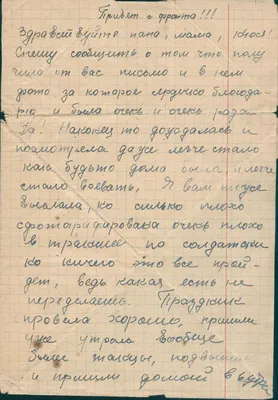 Привет с фронта!!!
Здравствуйте папа, мама, Кюся!
Спешу сообщить о том что полу
чила от вас письмо и в нем
фото за которое сердично благода-
рю и была очень и очень рада.
Да! Наконец то дождалась и
посмотрела даже легче стало
как будьто дома была, и легче
стало воевать. Я вам тоже
выслала ко силько плохо
сфотографирована очень плохо
в по солдатски
ко ничего это все прой-
дет, ведь какая есть не
переделаешь. Праздник
провела хорошо, пришли
уже утром вообще
были танцы,
и пришли домой в 6 утра